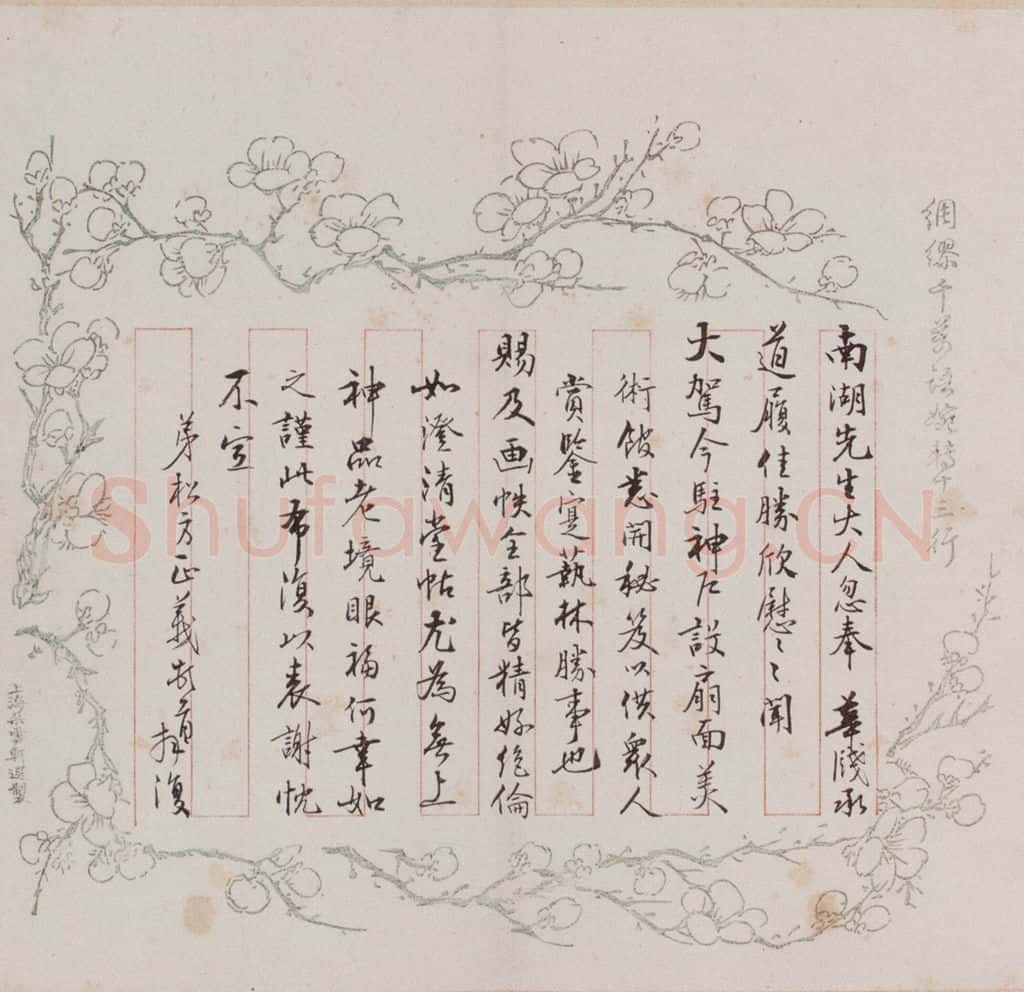 綢繆千萬語婉轉十三行
南湖先生大人忽奉 華牋承
道履佳勝欣慰〻聞
大駕今駐神戶設扇面美
術館悉開秘笈以供眾人
賞鑒寔藝林勝事也
賜及画帙全部皆精好絕倫
如澄清堂帖尤為無上
神品老境眼福何幸如
之謹此布復以表謝忱
不宣
弟松方正義 拜復
Shufawang.CN